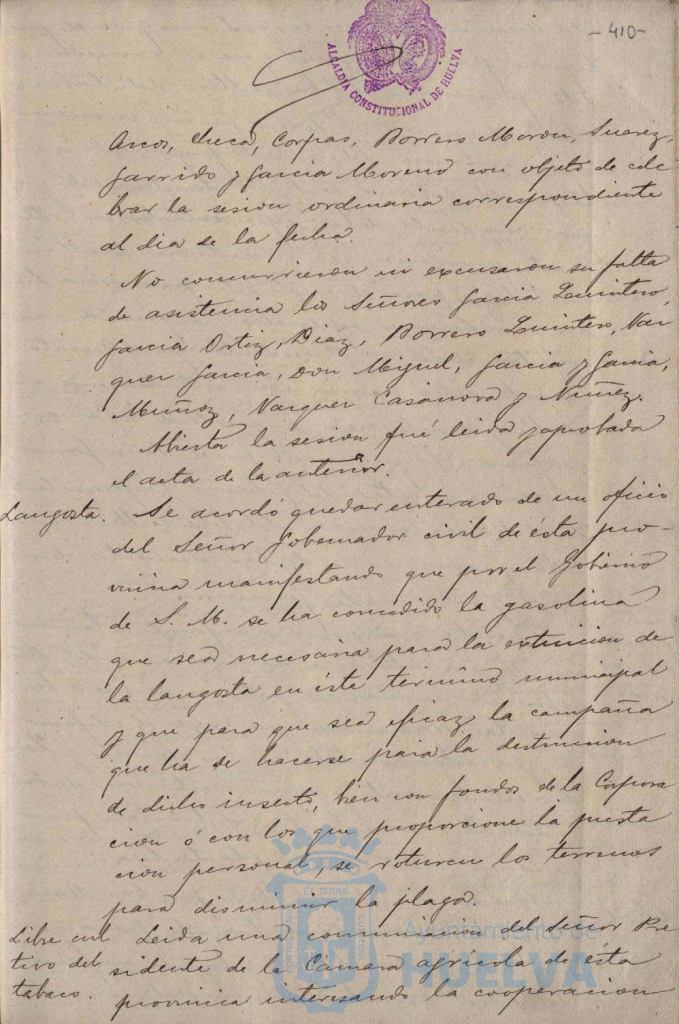 -410-
ALCALDIA CONSTITUCIONAL DE HUELVA
Arcos, Checa, Corpas, Borrero Moron, Suarez,
Garrido y Garcia Moreno con objeto de cele
brar la sesion ordinaria correspondiente
al dia de la fecha.
No concurrieron ni excusaron su falta
de asistencia los Señores Garcia Quintero,
Garcia Ortiz, Diaz, Borrero Quintero, Vaz
quez Garcia, Don Miguel, Garcia y Garcia,
Muñoz, Vazquez Casanova y Nuñez.
Abierta la sesion fué leida y aprobada
el acta de la anterior.
Langosta. Se acordó quedar enterado de un oficio
del Señor Gobernador civil de ésta pro-
vincia manifestando que por el Gobierno
de S. M. se ha concedido la gasolina
que sea necesaria para la extincion de
la langosta en éste termino municipal
y que para que sea eficaz la campaña
que ha de hacerse para la destruccion
de dicho insecto, bien con fondos de la Corpora
cion ó con los que proporcione la presta
cion personal, se roturen los terrenos
para disminuir la plaga.
Libre cul
tivo del
tabaco.
Leida una comunicacion del Señor Pre
sidente de la Cámara agrícola de ésta
provincia interesando la cooperacion
Ayuntamiento de
HUELVA